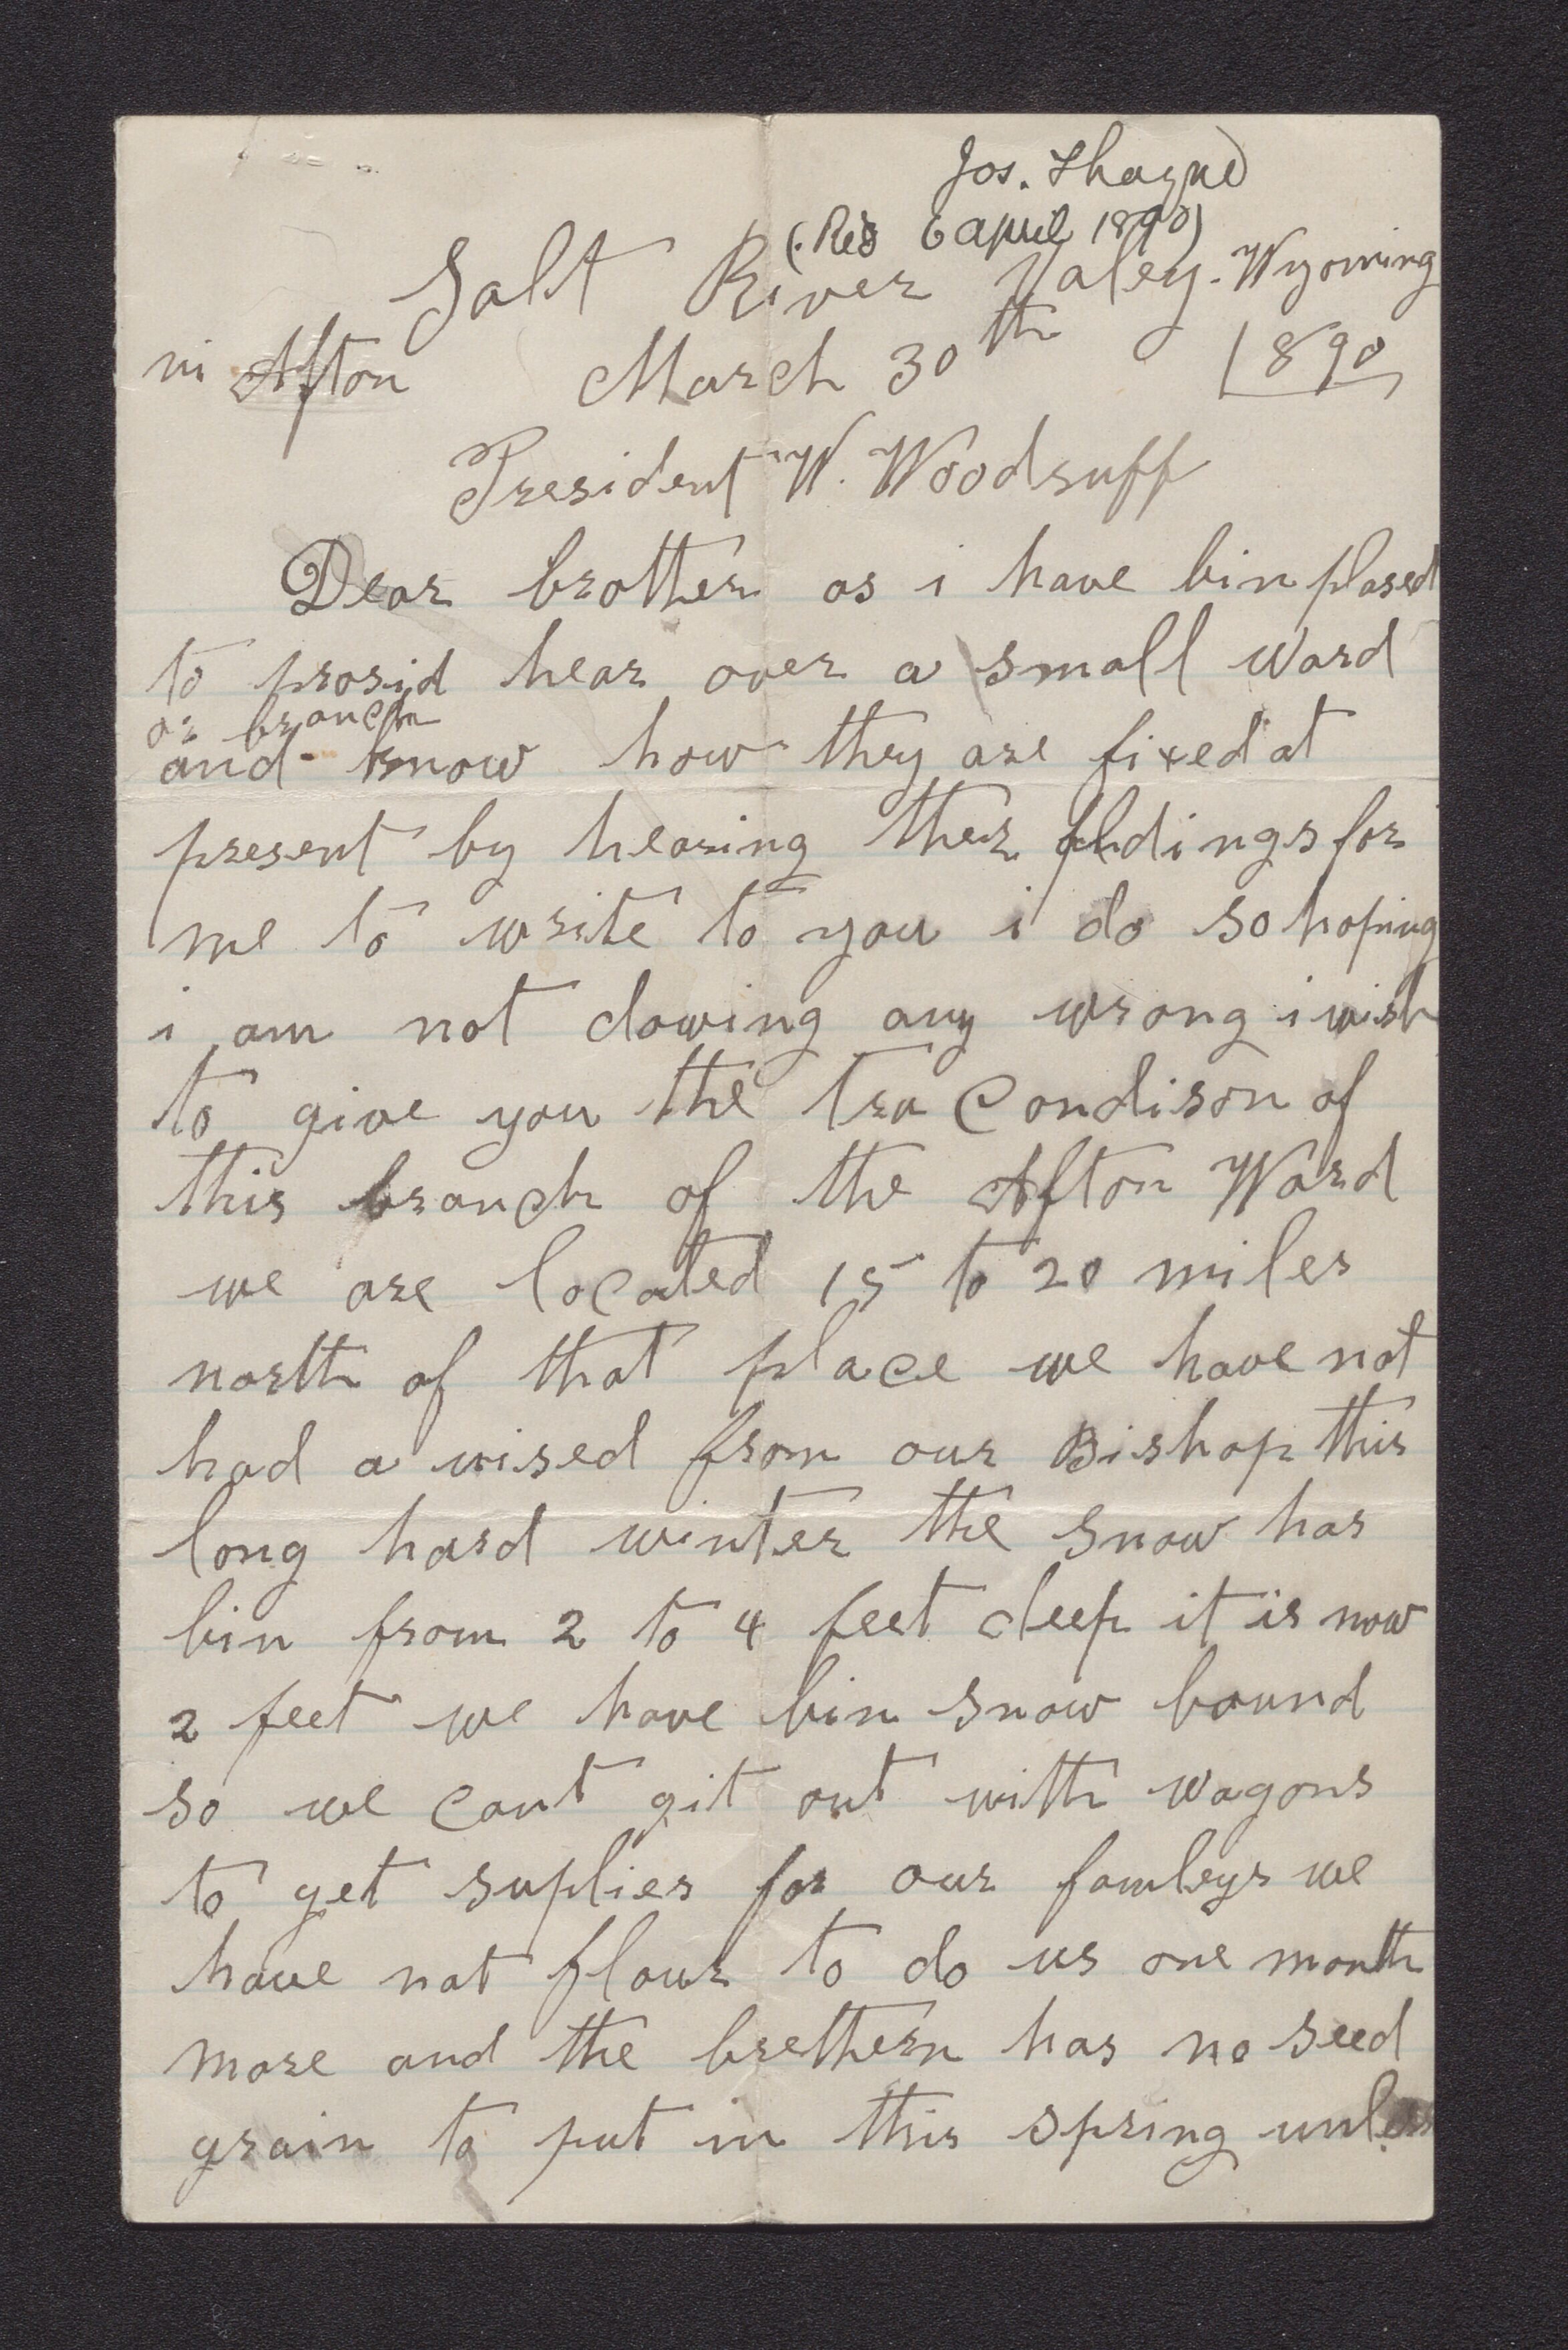 Jos. Thayne
(Rec 6 april 1890)
Salt River Valey. Wyoming
in Afton March 30th 1890
President W. Woodruff
Dear brother as i have bin plased
to prosid hear over a small Ward
or branch
and know how they are fixed at
present by hearing ther for
me to write to you i do so hoping
i am not dowing any wrong i wish
to give you the tru Condison of
this branch of the Afton Ward
we are located 15 to 20 miles
north of that place we have not
had a vised from our Bishop this
long hard winter the snow has
bin from 2 to 4 feet deep it is now
2 feet we have bin snow bound
so we cant git out with wagons
to get suplies for our famleys we
have not flour to do us one month
more and the brethern has no seed
grain to put in this spring unless